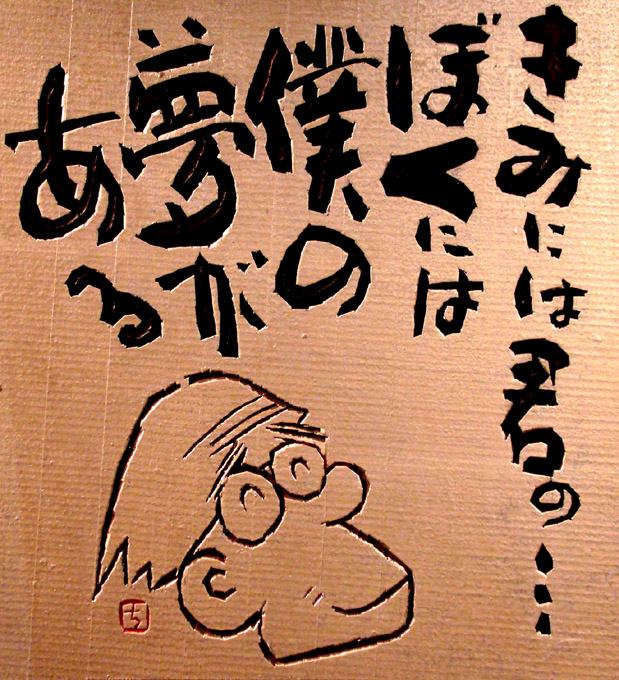 きみには君の…
ぼくには
僕の
夢が
ある
ち